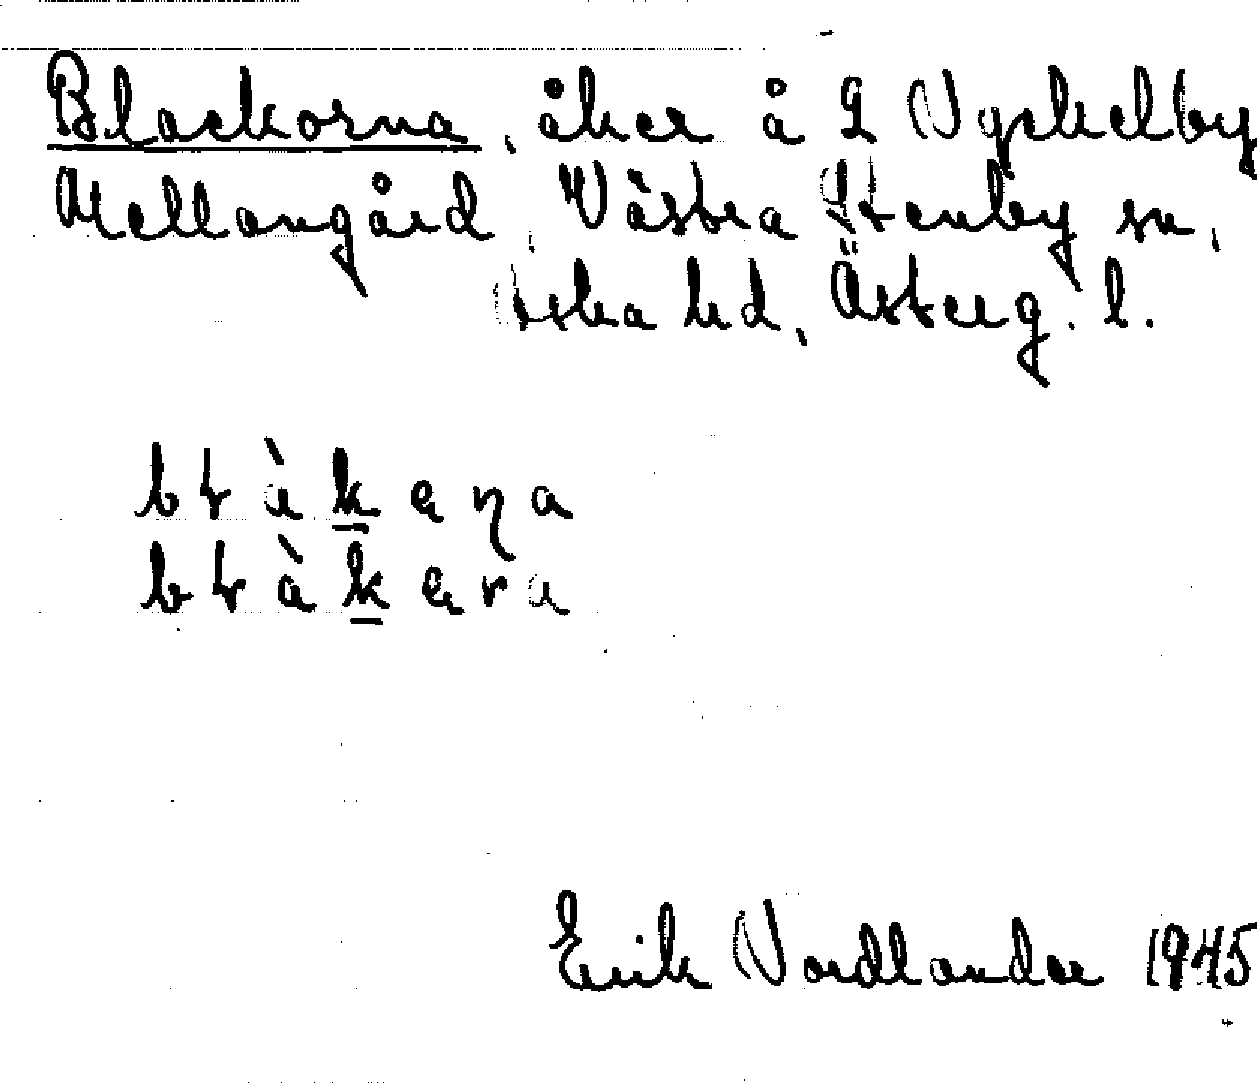 Blackorna, åker å 2 Nyckelby
Mellangård, Västra Stenby sn,
Aska hd, Österg. l.
blàkeɳa
blàkera
Erik Nordlander 1945